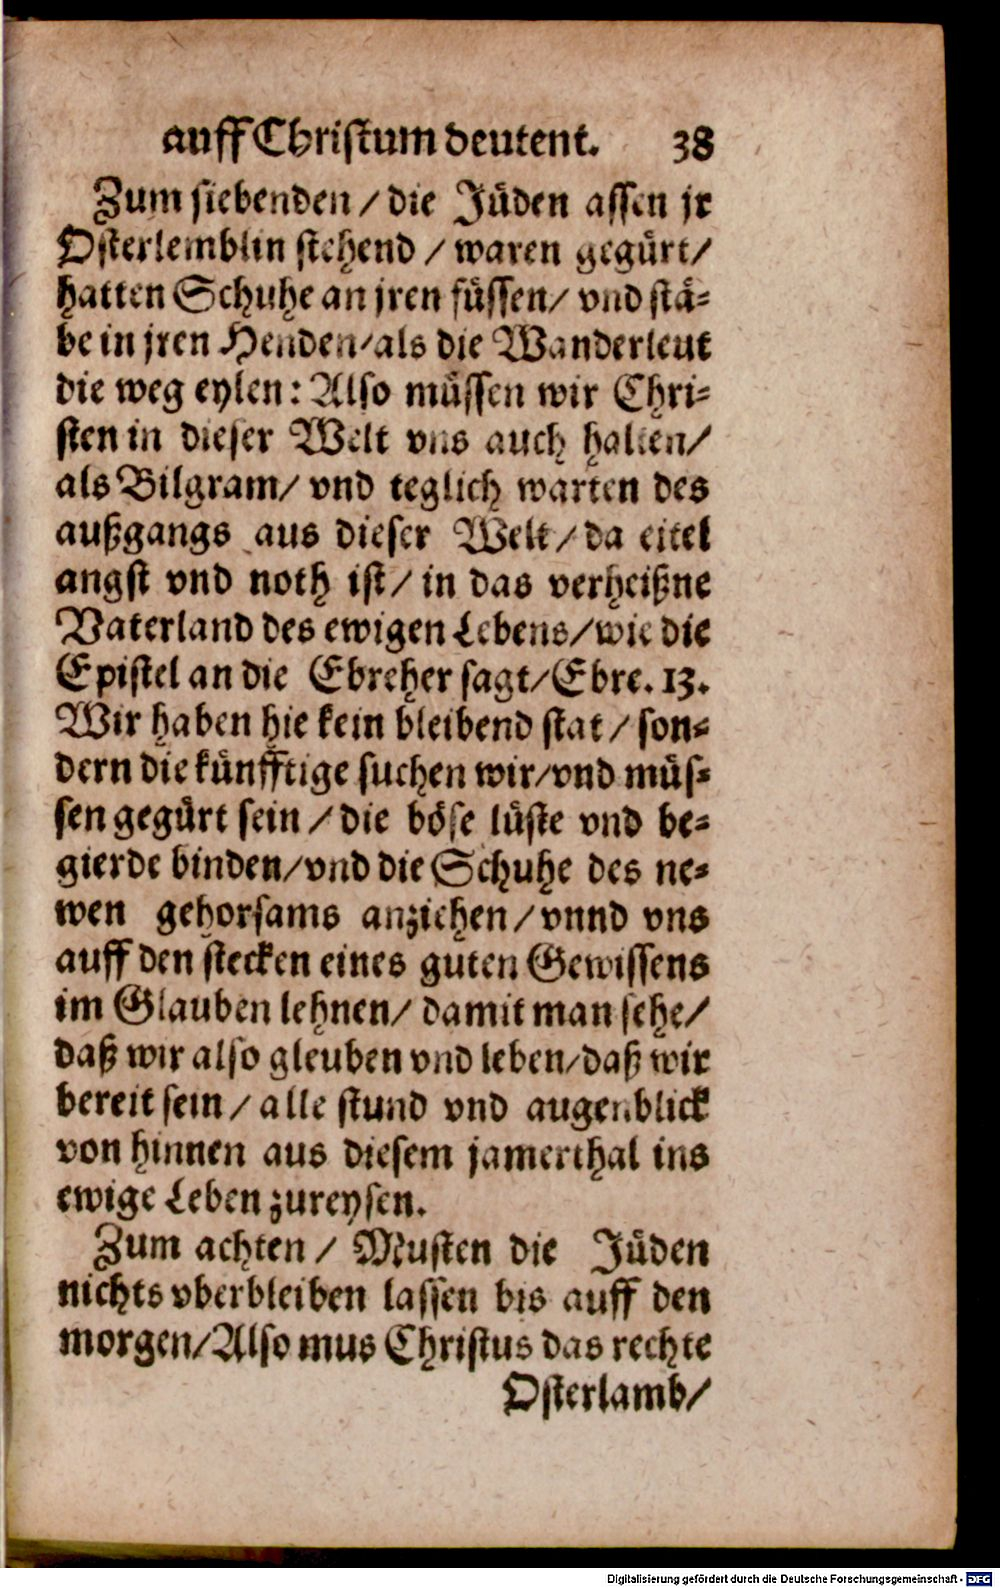 auff Christum deutent. 38
Zum siebenden / die Jüden assen jr
Osterlemblin stehend / waren gegürt/
hatten Schuhe an jren füssen/ vnd stä-
be in jren Henden/als die Wanderleut
die weg eylen: Also müssen wir Chri-
sten in dieser Welt vns auch halten/
als Bilgram/ vnd teglich warten des
außgangs aus dieser Welt/ da eitel
angst vnd noth ist/ in das verheißne
Vaterland des ewigen Lebens/wie die
Epistel an die Ebreher sagt/Ebre. 13.
Wir haben hie kein bleibend stat / son-
dern die künfftige suchen wir/vnd müs-
sen gegürt sein / die böse lüste vnd be-
gierde binden/vnd die Schuhe des ne-
wen gehorsams anziehen/ vnnd vns
auff den stecken eines guten Gewissens
im Glauben lehnen/ damit man sehe/
daß wir also gleuben vnd leben/daß wir
bereit sein / alle stund vnd augenblick
von hinnen aus diesem jamerthal ins
ewige Leben zureysen.
Zum achten / Musten die Jüden
nichts vberbleiben lassen bis auff den
morgen/Also mus Christus das rechte
Osterlamb/
Digitalisierung gefördert durch die Deutsche Forschungsgemeinschaft - DFG